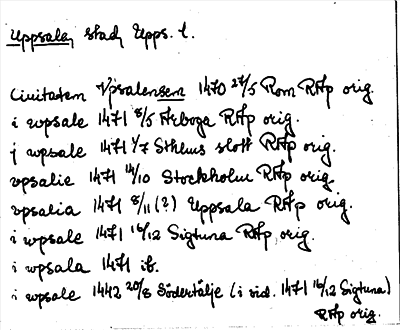 Uppsala, stad, Upps. l.
Ciuitatem Vpsalensem 1470 27/5 Rom RAp orig.
i wpsale 1471 8/5 Arboga RAp orig.
j wpsale 1471 1/7 Sthlms slott RAp orig.
vpsalie 1471 14/10 Stockholm RAp orig.
vpsalia 1471 8/11 (?) Uppsala RAp orig.
i wpsale 1471 16/12 Sigtuna RAp orig.
i wpsala 1471 ib.
i wpsale 1442 20/8 Södertälje (i vid. 1471 16/12 Sigtuna)
RAp orig.